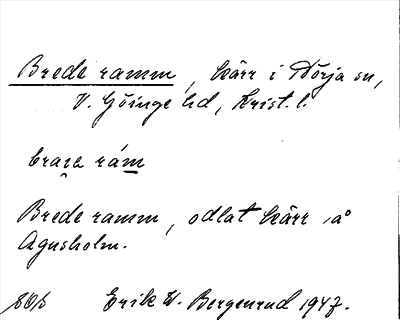 Brede ramm, kärr i Nörja sn,
V. Göinge hd, Krist. l.
rám
Brede ramm, odlat kärr å
Agusholm.
Erik W. Bergenrud 1947.